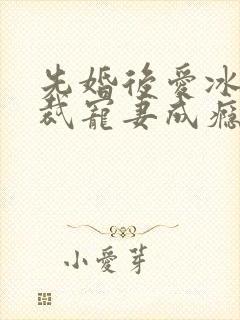 先婚後愛冰
裁寵妻成癮
小愛芽